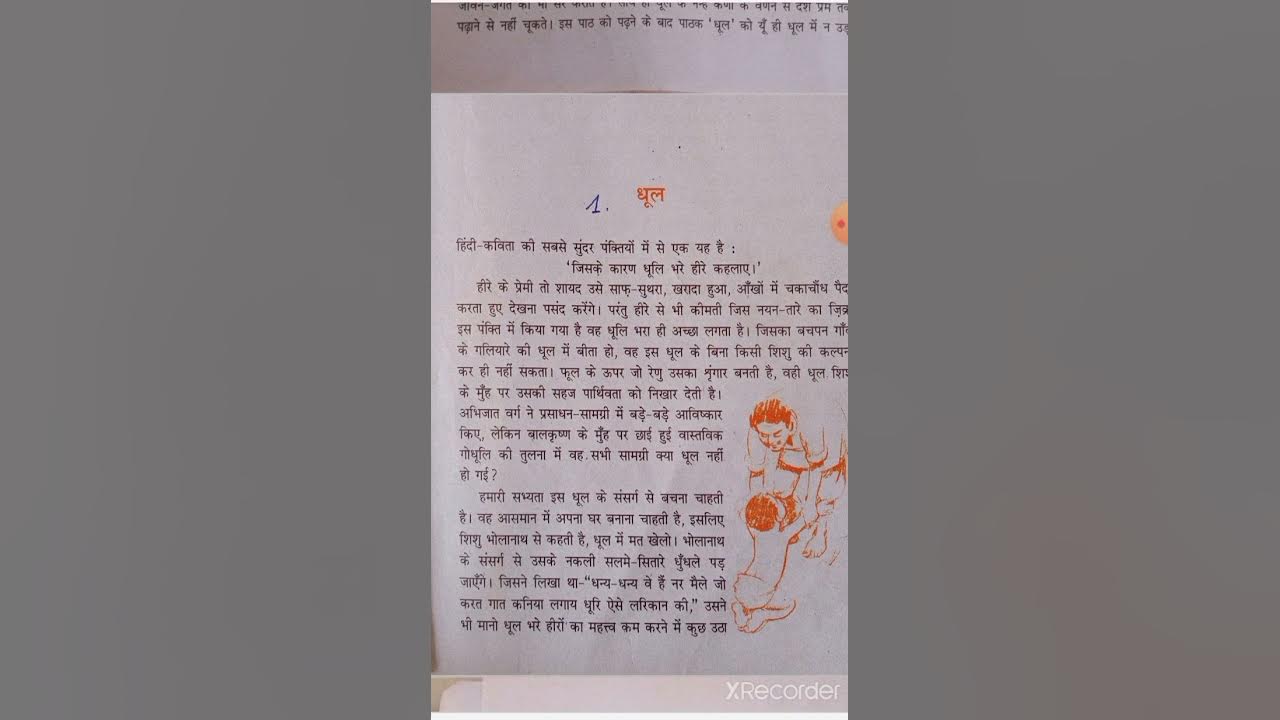 जीवन-जगत की भी सैर कराते हैं। साथ ही धूल के नन्हें कणों के वर्णन से देश प्रेम तक
पढ़ाने से नहीं चूकते। इस पाठ को पढ़ने के बाद पाठक ‘धूल’ को यूँ ही धूल में न
1. धूल
हिंदी-कविता की सबसे सुंदर पंक्तियों में से एक यह है :
‘जिसके कारण धूलि भरे हीरे कहलाए।’
हीरे के प्रेमी तो शायद उसे साफ़-सुथरा, खरादा हुआ, आँखों में चकाचौंध पैद
करता हुए देखना पसंद करेंगे। परंतु हीरे से भी कीमती जिस नयन-तारे का ज़िक्र
इस पंक्ति में किया गया है वह धूलि भरा ही अच्छा लगता है। जिसका बचपन गाँव
के गलियारे की धूल में बीता हो, वह इस धूल के बिना किसी शिशु की कल्पन
कर ही नहीं सकता। फूल के ऊपर जो रेणु उसका शृंगार बनती है, वही धूल शिश
के मुँह पर उसकी सहज पार्थिवता को निखार देती है।
अभिजात वर्ग ने प्रसाधन-सामग्री में बड़े-बड़े आविष्कार
किए, लेकिन बालकृष्ण के मुँह पर छाई हुई वास्तविक
गोधूलि की तुलना में वह सभी सामग्री क्या धूल नहीं
हो गई?
हमारी सभ्यता इस धूल के संसर्ग से बचना चाहती
है। वह आसमान में अपना घर बनाना चाहती है, इसलिए
शिशु भोलानाथ से कहती है, धूल में मत खेलो। भोलानाथ
के संसर्ग से उसके नकली सलमे-सितारे धुँधले पड़
जाएँगे। जिसने लिखा था-“धन्य-धन्य वे हैं नर मैले जो
करत गात कनिया लगाय धूरि ऐसे लरिकान की,” उसने
भी मानो धूल भरे हीरों का महत्त्व कम करने में कुछ उठा
XRecorder